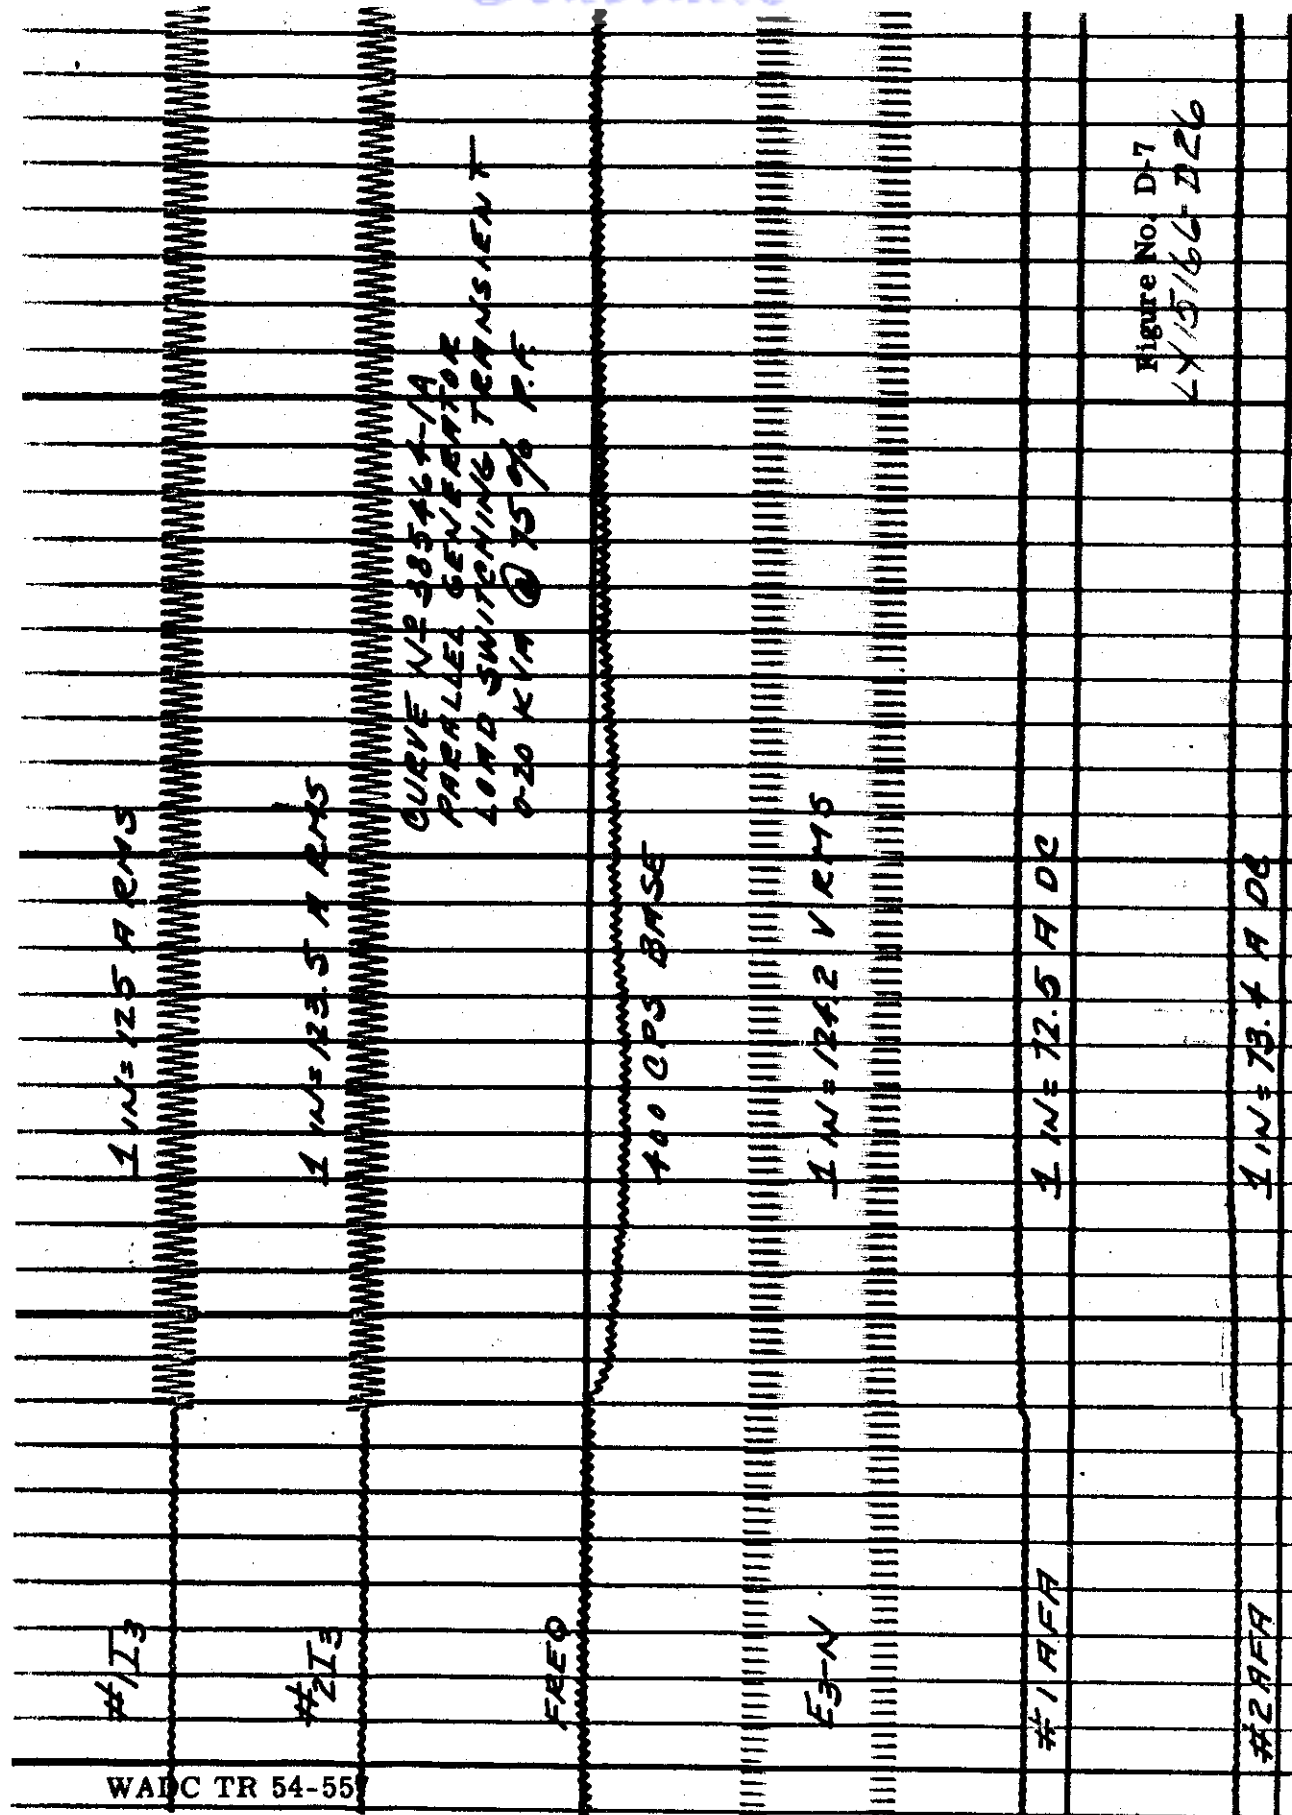 #1I3
1 IN = 125 A RMS
#2I3
1 IN = 123.5 A RMS
CURVE Nº 38546 4-1A
PARALLEL GENERATOR
LOAD SWITCHING TRANSIENT
0-20 KVA @ 75% P.F.
FREQ
400 CPS BASE
E3-N
1 IN = 124.2 V RMS
#1 AFA
1 IN = 72.5 A DC
Figure No. D-7
LY15166-D26
#2 AFA
1 IN = 73.4 A DC
WADC TR 54-557